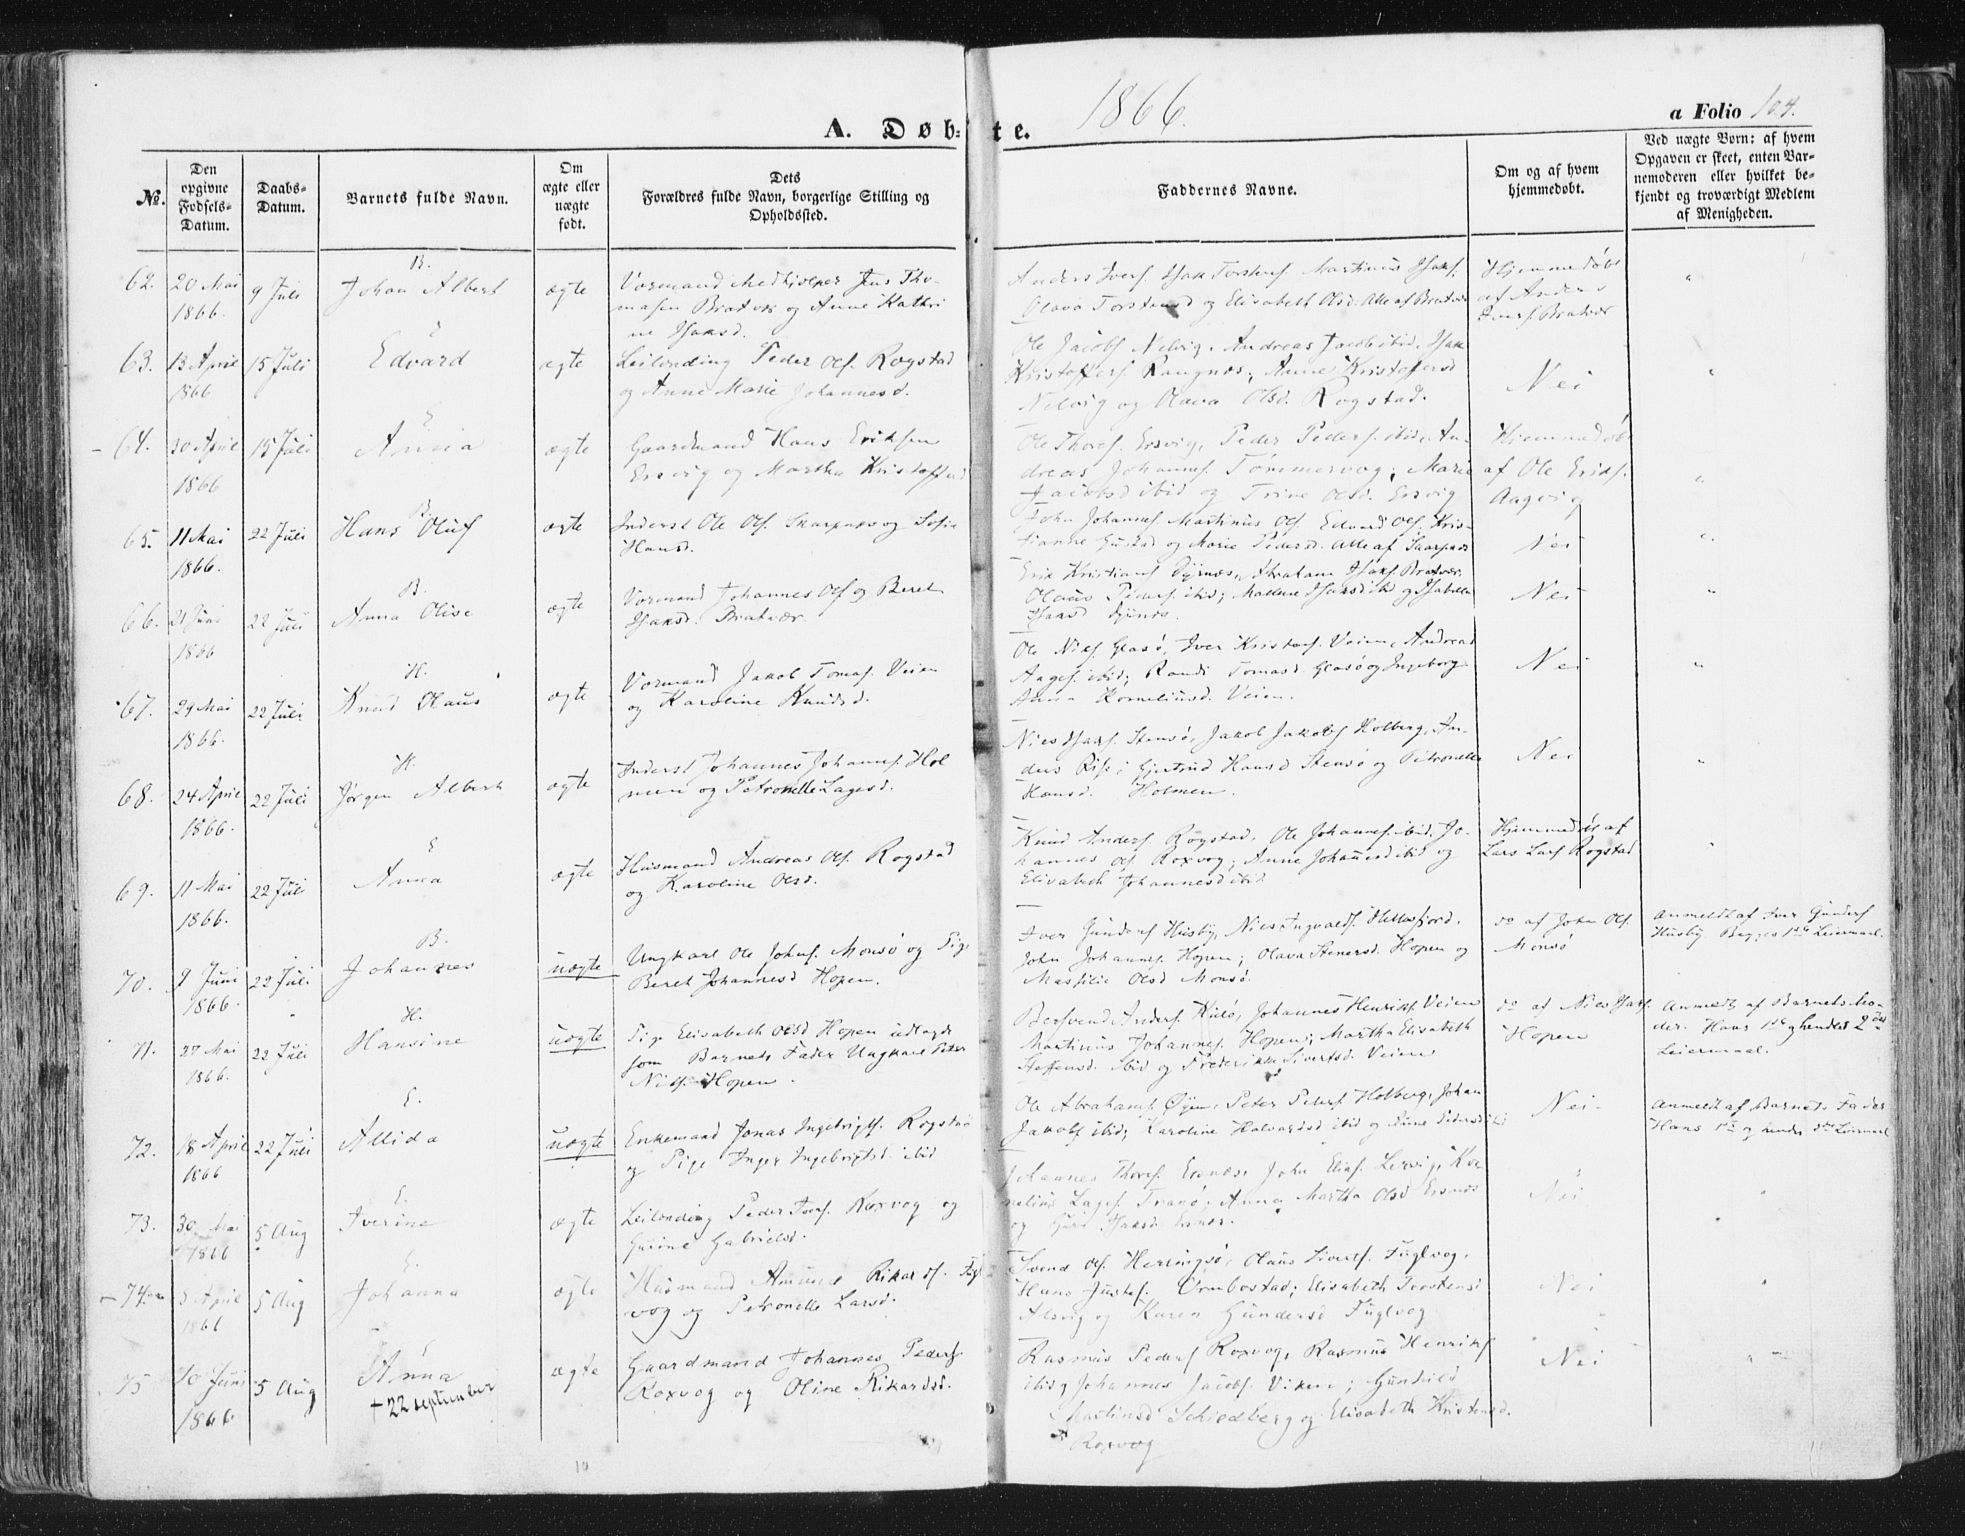 1866.
a Folio 104.
A. Døbte.
No.
Den opgivne Fødsels-Datum.
Daabs-Datum.
Barnets fulde Navn.
Om ægte eller uægte født.
Dets Forældres fulde Navn, borgerlige Stilling og Opholdsted.
Faddernes Navne.
Om og af hvem hjemmedøbt.
Ved uægte Børn: af hvem Opgaven er skeet, enten Barnemoderen eller hvilket bekjendt og troværdigt Medlem af Menigheden.
B.
62. 20 Mai 9 Juli Johan Albert ægte Vormand Medhjelper Jens Tho- Anders Ivers. Isak Torstens. Martinus Isaks. Hjemmedøbt "
1866. masen Bratvær og Anne Kathri Olava Torstensd og Elisabeth Olsd. Alle af Bratvær af Anders
ne Isaksd. Ivers. Bratvær
E
63. 13 April 15 Juli Edvard ægte Leilending Peder Ols. Rogstad Ole Jacobs Nelvig, Andreas Jacobs ibid, Isak
1866 og Anne Marie Johannesd. Kristoffers. Rangnæs; Anne Kristoffersd Nei "
Nelvig og Olava Olsd. Rogstad.
E
64. 30 April 15 Juli Anna ægte Gaardmand Hans Eriksen Ole Thores. Ersvig, Peder Peders. ibid, An- Hjemmedøbt
1866 Ersvig og Martha Kristoffersd dreas Johannes. Tømmervog; Marie af Ole Eriks. "
Jacobsd ibid og Trine Olsd. Ersvig Aagvig
B.
65. 11 Mai 22 Juli Hans Oluf ægte Inderst Ole Ols. Skarpnæs og Sofie John Johannes. Martinus Ols. Edvard Ols. Kris-
1866. Hansd. tianne Gustad og Marie Pedersd. Alle af Skarpnæs Nei "
B.
66. 21 Juni 22 Juli Anna Olise ægte Vormand Johannes Ols og Beret Erik Kristians Dyrnæs, Abraham Isaks. Bratvær,
1866 Isaksd. Bratvær. Olaus Peders. ibid; Malene Isaksd ibid og Isabella Nei "
Isaksd Dyrnæs.
H.
67. 29 Mai 22 Juli Knud Olaus ægte Vormand Jakob Tomas. Veien Ole Niels Glasø, Iver Kristofs. Veien, Andreas
1866. og Karoline Knudsd. Aages. ibid; Randi Tomasd. Glasø og Ingeborg Nei "
Anna Korneliusd. Veien.
H.
68. 24 April 22 Juli Jørgen Albert ægte Inderst Johannes Johannes. Hol Niels Isaks. Stensø, Jakob Jakobs Holberg, An-
1866. men og Petronelle Lagesd. ders Ris; Gjertrud Hansd Stensø og Petronelle Nei "
Hansd. Holmen.
E
69. 11 Mai 22 Juli Anna ægte Husmand Andreas Ols. Rogstad Knud Anders. Rogstad, Ole Johannes. ibid, Jo- Hjemmedøbt af "
1866. og Karoline Olsd. hannes Ols Roxvog; Anne Johannesd ibid og Lars Lars Rogstad
Elisabeth Johannesd ibid.
B.
70. 9 Juni 22 Juli Johannes uægte Ungkarl Ole Johns. Monsø og Pige Iver Gunders Husby, Niels Ingvalds. Hellesfjord. do af John Ols. Anmeldt af Iver Gunders
1866. Beret Johannesd Hopen. John Johannes. Hopen; Olava Stenersd. Hopen og Monsø Husby. Begges 1ste Leiermaal.
Massilie Olsd Monsø.
H.
71. 27 Mai 22 Juli Hansine uægte Pige Elisabeth Olsd Hopen udlagde Bersvend Anders Kulø, Johannes Henriks. Veien do af Niels Isaks. Anmeldt af Barnets Mo-
1866. som Barnets Fader Ungkarl Peter Martinus Johannes. Hopen; Martha Elisabeth Hopen der. Hans 1ste og hendes 2det
Niels. Hopen. Steffensd. ibid og Frederikke Sivertsd. Veien Leiermaal.
E.
72. 18 April 22 Juli Allida uægte Enkemand Jonas Ingebrigts. Rogstad Ole Abrahams. Øyen, Peter Peters Holberg, Johan Nei Anmeldt af Barnets Fader
1866 og Pige Inger Ingebrigtsd. ibid Jakobs ibid; Karoline Halvordsd ibid og Hans 1ste og hendes Leiermaal
E.
73. 30 Mai 5 Aug Iverine ægte Leilending Peder Ivers. Roxvog og Johannes Thores. Ersnæs, John Elias. Lervig, Kor Nei "
1866 Gurine Gabrielsd. nelius Lages. Tranø; Anna Martha Olsd Ersnæs
og Isaksd Ersnæs.
E.
74. 3 April 5 Aug Johanna ægte Husmand Amund Rikards. Fugl Svend Ols. Herringsø, Olaus Siverts. Fuglvog, Nei "
1866 vog og Petronelle Larsd. Hans Justes. Ormbostad; Elisabeth Torstensd
Alsvig og Karen Gundersd Fuglvog
75 10 Juni 5 Aug Anna ægte Gaardmand Johannes Peders Rasmus Peders Roxvog, Rasmus Henriks Nei "
1866 + 22 september Roxvog og Oline Rikardsd. ibid, Johannes Jacobs. Viken; Gunhild
Martinsd Schiedberg og Elisabeth Kristensd.
Roxvog